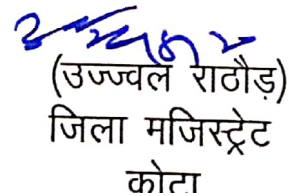 (उज्ज्वल राठौड़)
जिला मजिस्ट्रेट
कोटा